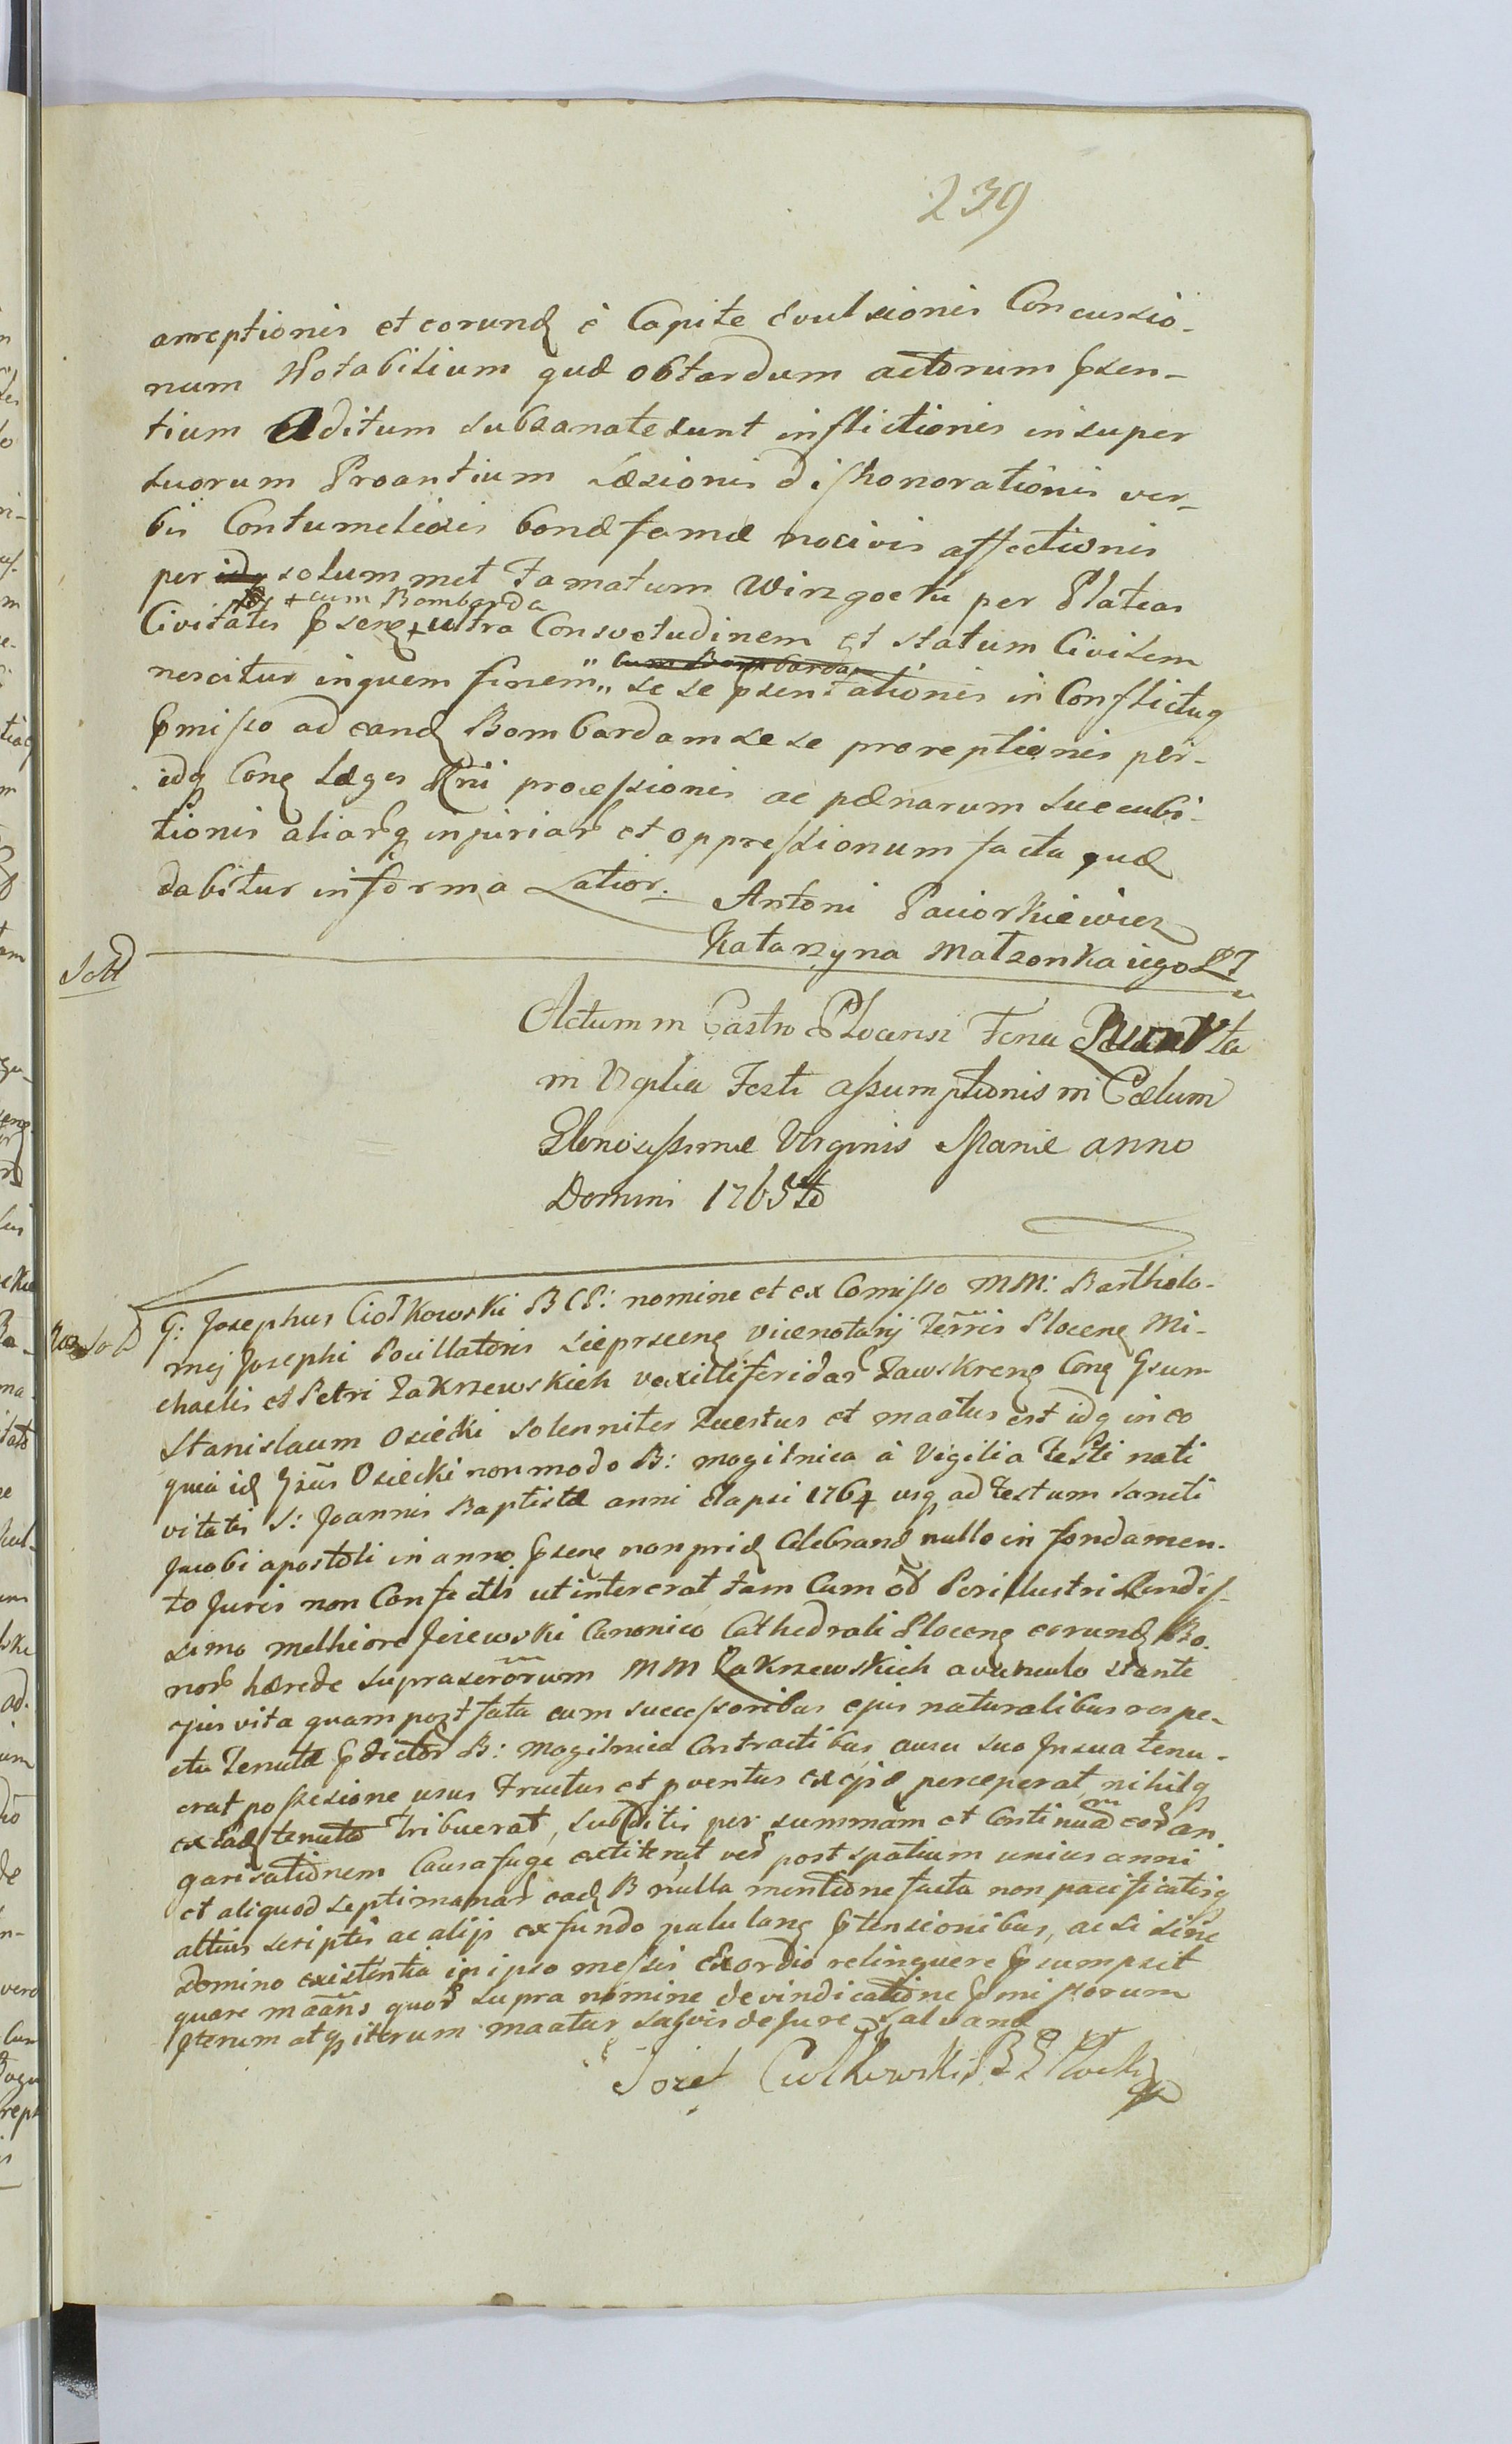 239
arreptionis et eorundꝫ è Capite Evulsionis Concussio-
num Notabilium quæ obtardum actorum ꝑsen-
tium Aditum subsanatesunt inflictionis insuper
suorum Proantium Læsionis dishonorationis ver-
bis Contumeliosis bonæ famæ nocivis affectionis
per idq solummet Famatum Winzgoetu per Plateas
+ cum Bombarda
Civitatis ꝑsenꝫ + ultra Consvetudinem et statum Civilem
cum Bombarda
nescitur in quem finem " se se psentationis in Conflictuq
ꝑmisso ad eandꝫ Bombardam sese proreptionis per-
idq Conꝫ Læges Rñi processionis ac pænarum succubi-
tionis aliarq injuriar et oppressionum facta quæ
dabitur in forma Latior.
Antoni Paciorkiewicz
Katarzyna Matzonka iego
Sold
Actum in Castro Plocensi Feria Quarta
in Vigilia Festi Assumptionis in Cælum
Gloriosissimæ Virginis Mariæ anno
Domini 1765to
G: Josephus Ciołkowski B C P: nomine et ex Comisso MM: Bartholo-
mej Josephi Pocillatoris Sieprscenꝫ vicenotarij Terris Plocenꝫ Mi-
chaelis et Petri Zakrzewskich vexilliferidar Zawskrenꝫ Conꝫ Gsum
Stanislaum Osiecki solenniter Questus et maatus est idq in eo
quia idꝫ Gsus Osiecki non modo B: mogilnica à Vigilia Festi nati
vitatis S: Joannis Baptistæ anni elapsi 1764 usq ad Festum Sancti
Jacobi apostoli in anno ꝑsenꝫ nonpridꝫ Celebrand nullo in fondamen-
to Juris non Confectis ut intererat tam Cum oð Perillustri Rndis-
simo Melhiore Jezewski Canonico Cathedrali Plocenꝫ eorundꝫ Bo-
nor hærede suprascrorum MM Zakrzewskich avunculo stante
ejus vita quam post fata cum successoribus ejus naturalibus respe-
ctu Tenutæ ꝑdictor B: Mogilnica Contractibus ausu suo Insua tenu-
erat possesione usus Fructus et pventus ex ejs perceperat, nihilq
ex Eadꝫ tenuta tribuerat, subditis per summam et Continuam eor an-
garisationem Causa fuge extiterat ver post spatium unius anni
et aliquod septimanar eadꝫ B nulla mentione facta non pacificatisq
altius scriptis ac alijs ex fundo palulanꝫ ꝑtensionibus, ac si sine
domino existentia in ipso messis Exordio relinquere ꝑsumpsit
quare maans quor supra nomine de vindicatione ꝑmissorum
Iterum atq iterum maatur salvis de Jure salvand
Jozef Ciołkowski B C Płocki